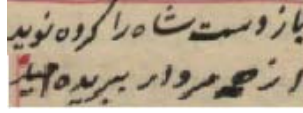 باز دست شاه را کرده نوید
از همه مردار ببریده امید